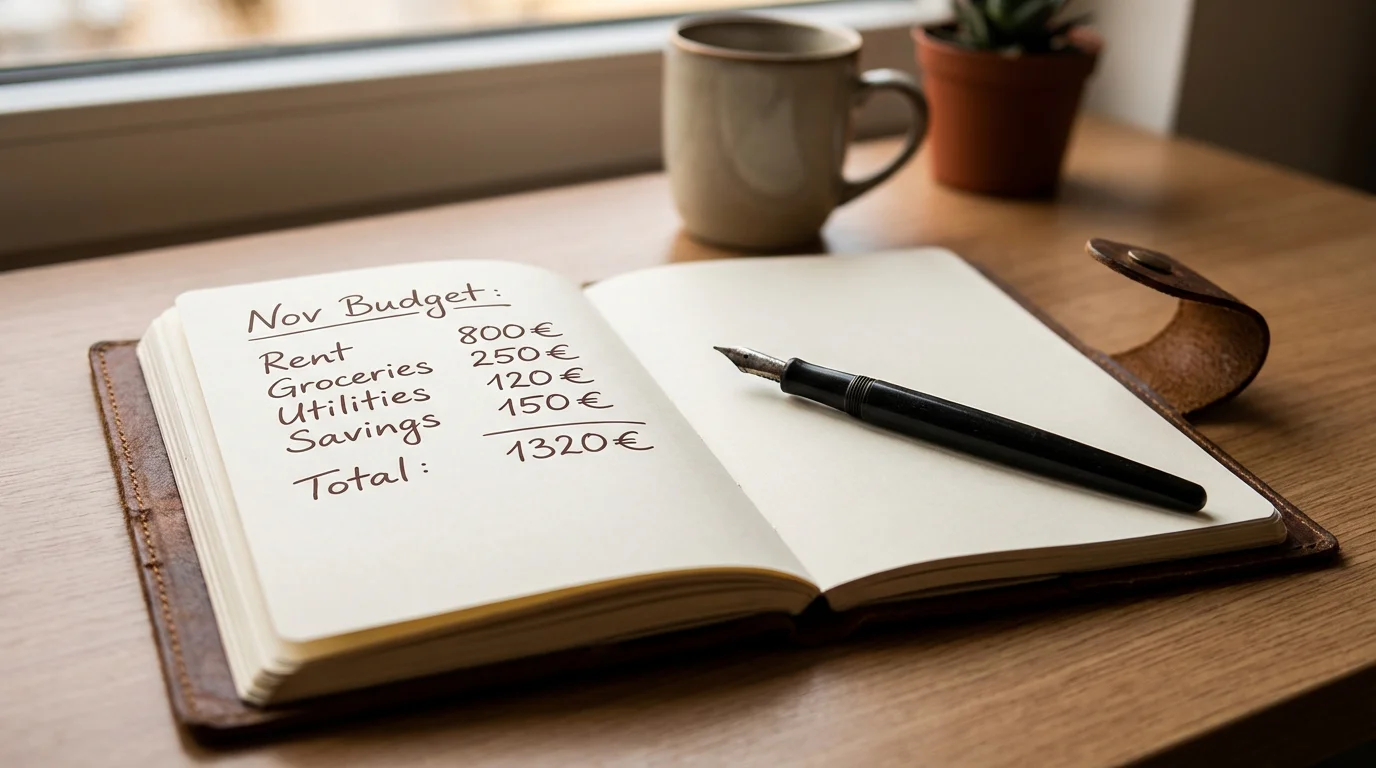 Nov Budget:
Rent 800€
Groceries 250€
Utilities 120€
Savings 150€
Total: 1320€